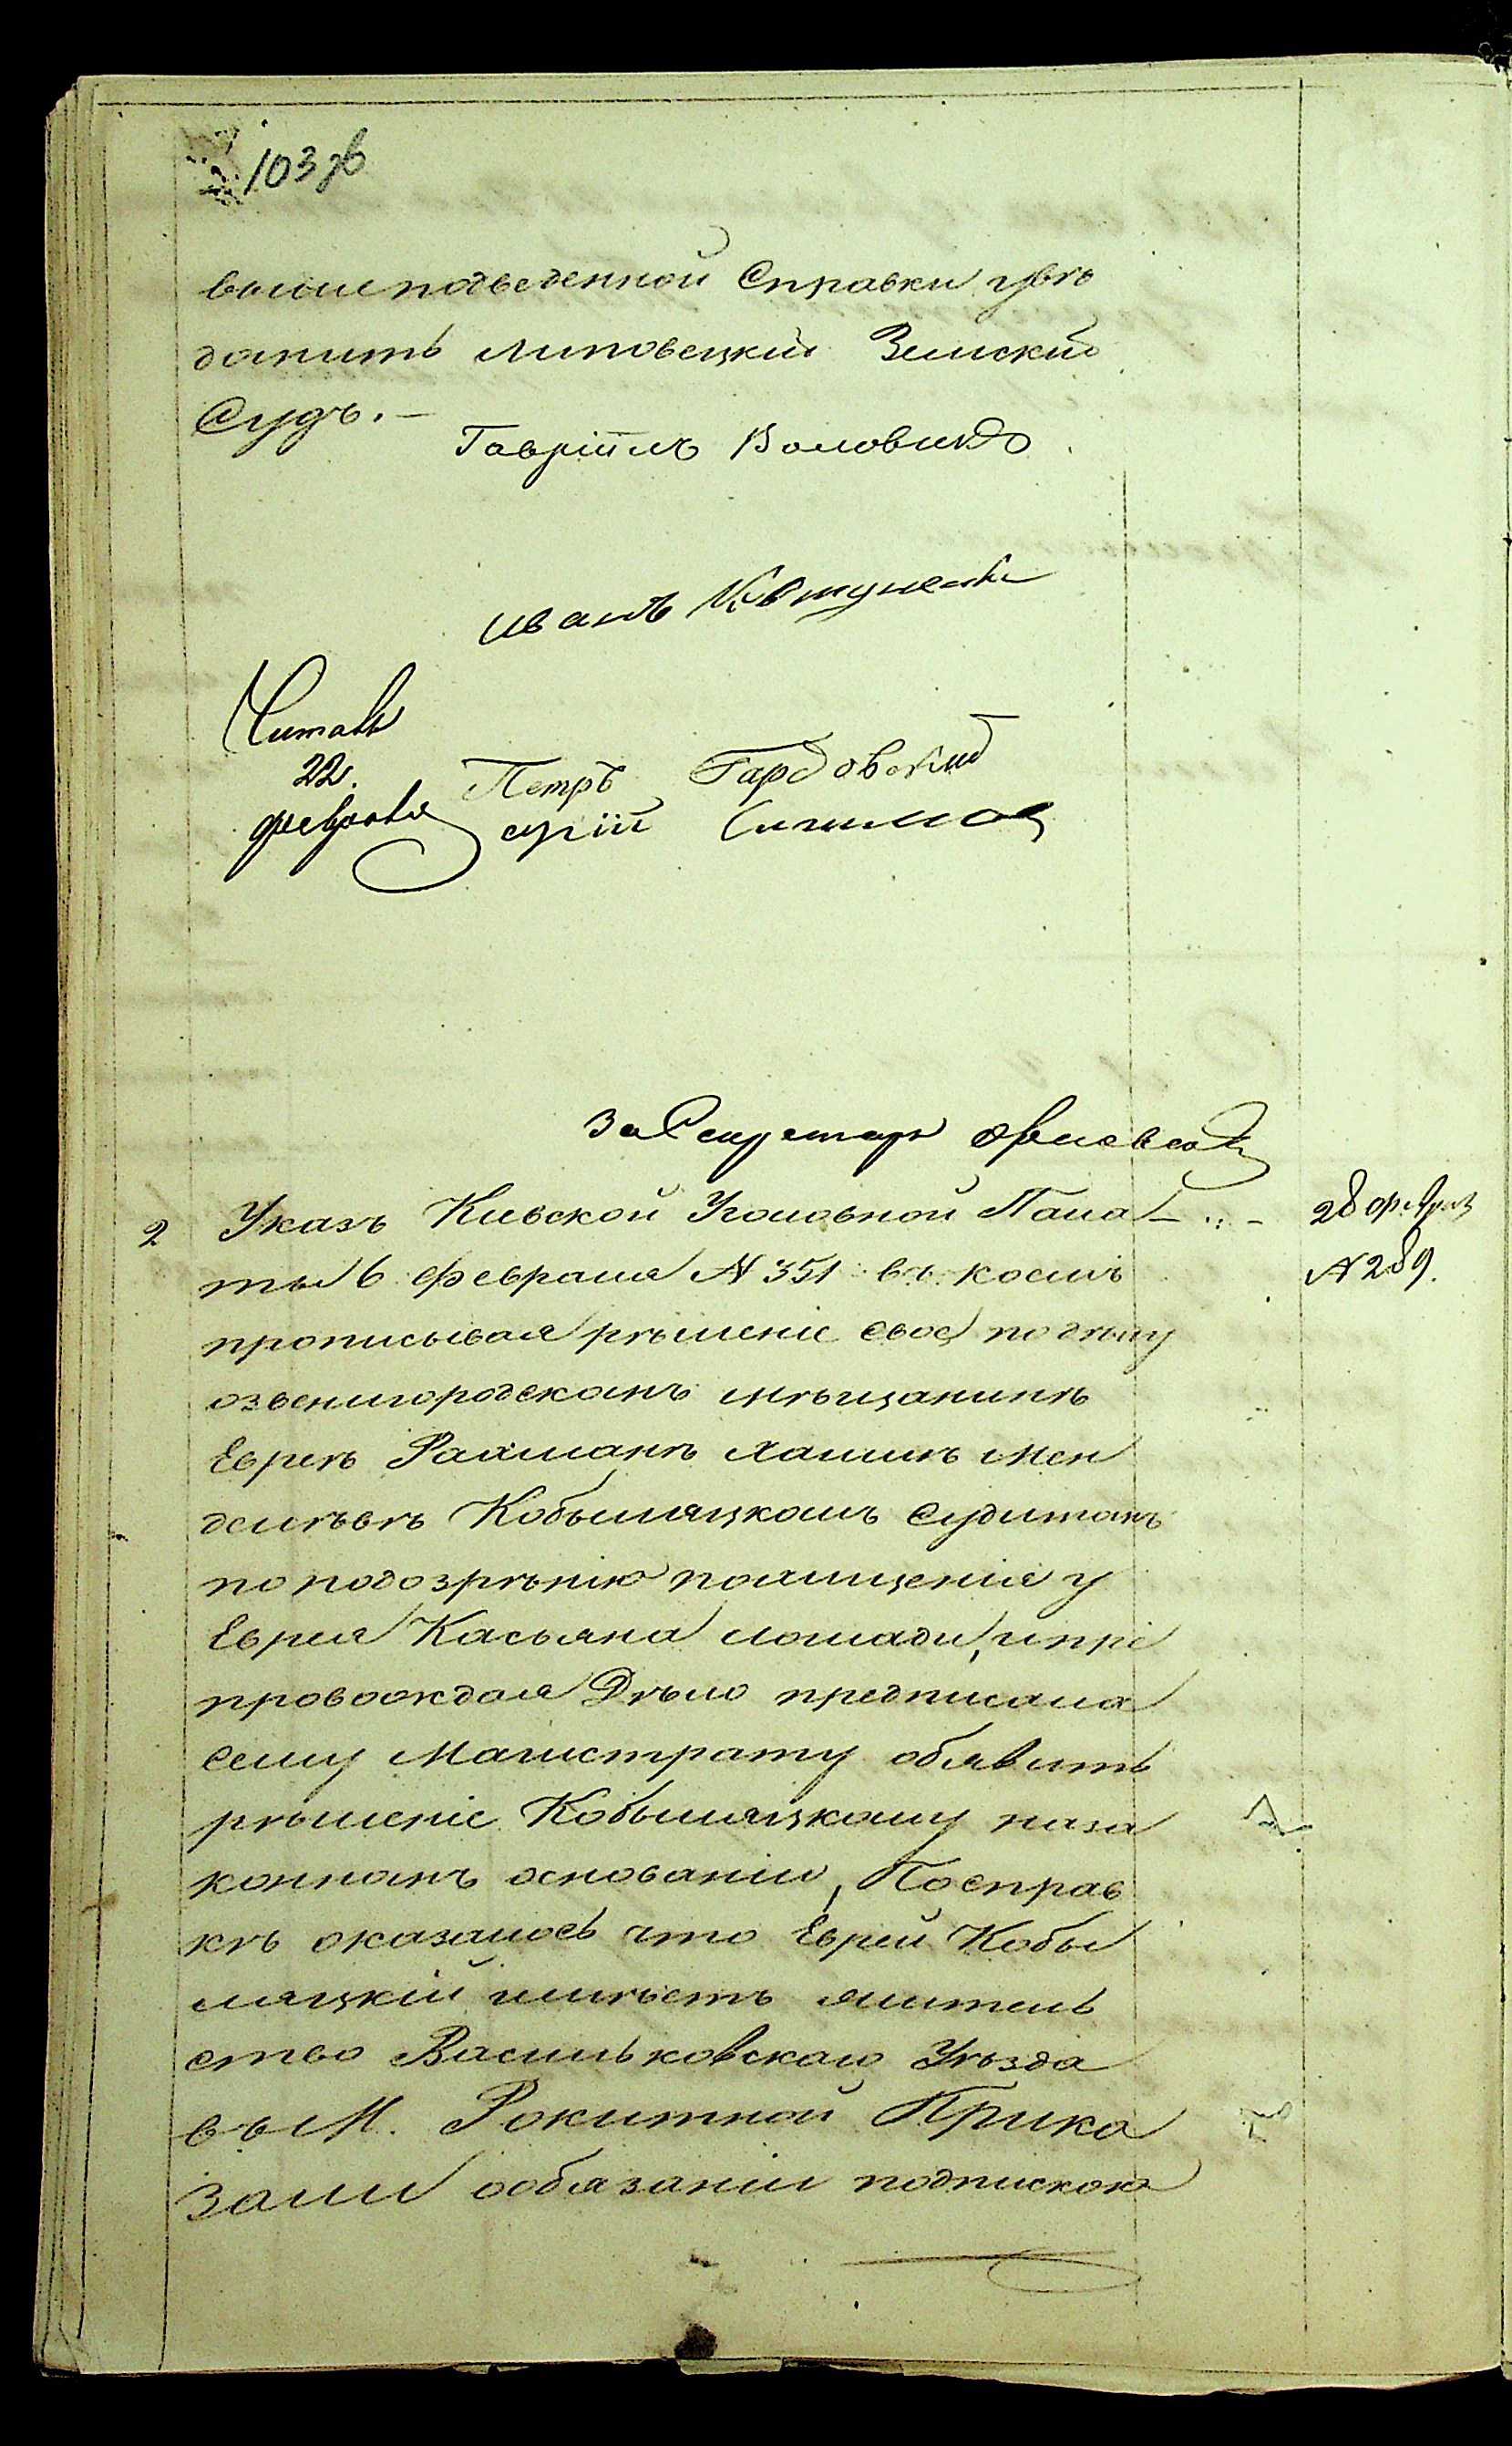 103 зв
вышеподведенной Справки увѣ
домить Липовецкій Земскій
Судъ. —
Гавріилъ Воловик
Иванъ Ковтуненко
Читалъ
22.
февраля
Петръ Гардовскій
За Секретаря
2 Указъ Кіевской Уголовной Пала — „ — 28 февраля
ты 6 февраля № 351 въ коемъ № 289.
прописывая рѣшеніе свое по дѣлу
озвенигородскомъ мѣщанинѣ
Евреѣ Хаимѣ Мен
делѣевѣ Кобыляцкомъ Судимомъ
по подозрѣнію похищенія у
Еврея Касьяна лошади, и пре
провождая Дѣло предписала
Сему Магистрату обявить
рѣшеніе Кобыляцкому наза
конномъ основаніи, Посправ
кѣ оказалось что Еврей Кобы
ляцкій имѣетъ жител
ство Васильковскаго Уѣзда
въ М. Рокитной Прика
зали ообязаніи подпискою